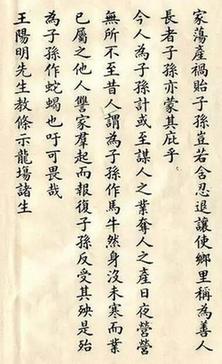 家蕩產禍貽子孫豈若含忍退讓使鄉里稱為善人
長者子孫亦蒙其庇乎
今人為子孫計或至謀人之業奪人之產日夜營營
無所不至昔人謂為子孫作馬牛然身沒未寒而業
已屬之他人讐家羣起而報復子孫反受其殃是殆
為子孫作蛇蝎也吁可畏哉
王陽明先生教條示龍場諸生